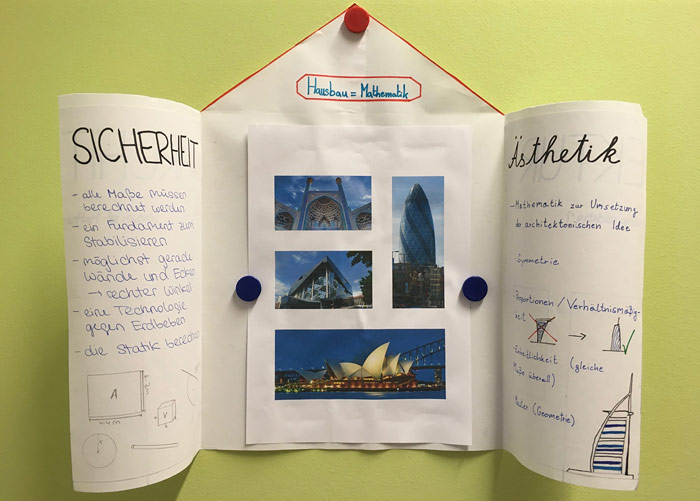 Hausbau = Mathematik
SICHERHEIT
- alle Maße müssen
berechnet werden
- ein Fundament zum
Stabilisieren
- möglichst gerade
Wände und Ecken
→ rechter Winkel
- eine Technologie
gegen Erdbeben
- die Statik berechnen
A
V
Ästhetik
- Mathematik zur Umsetzung
der architektonischen Idee
- Symmetrie
- Proportionen / Verhältnismäßig-
keit
- Einheitlichkeit (gleiche
Maße überall)
- Muster (Geometrie)